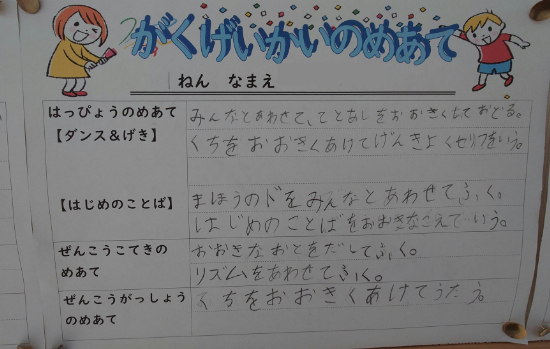 がくげいかいのめあて
ねん なまえ
はっぴょうのめあて
【ダンス&げき】
みんなとあわせて、てとあしをおおきく おどる。
くちをおおきくあけてげんきよくセリフをいう。
【はじめのことば】
まほうのドをみんなとあわせてふく。
はじめのことばをおおきなこえでいう。
ぜんこうこてきの
めあて
おおきなおとをだしてふく。
リズムをあわせてふく。
ぜんこうがっしょう
のめあて
くちをおおきくあけてうたう。